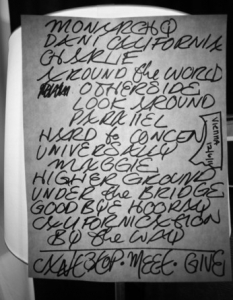 MONARCHO
DANI CALIFORNIA
CHARLIE
AROUND the WORLD
OTHERSIDE
LOOK AROUND
PARALLEL
HARD to CONCEN
UNIVERSALLY
MAGGIE
HIGHER GROUND
UNDER the BRIDGE
GOODBYE HOORAY
CALIFORNICATION
BY the WAY
MEET · GIVE
Vienna